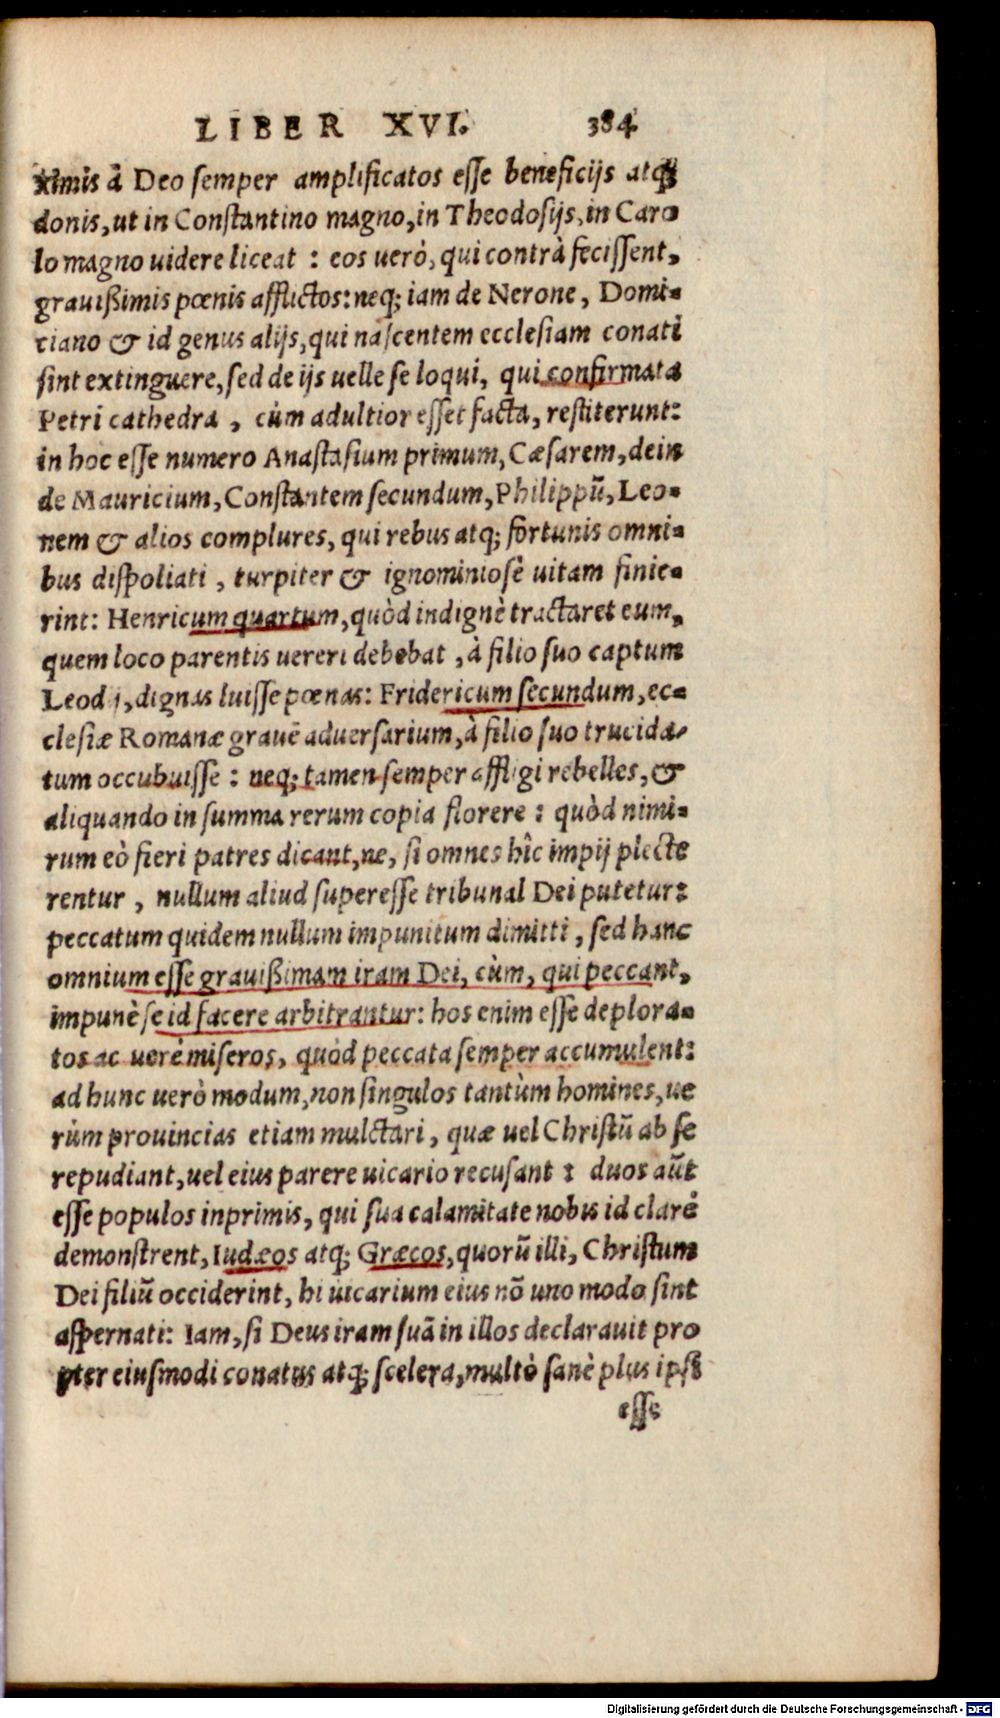 LIBER XVI. 384
ximis â Deo semper amplificatos esse beneficijs atq;
donis, ut in Constantino magno, in Theodosijs, in Caro
lo magno uidere liceat : eos uerò, qui contrà fecissent,
grauißimis pœnis afflictos: neq; iam de Nerone, Domi-
ciano & id genus alijs, qui nascentem ecclesiam conati
sint extinguere, sed de ijs uelle se loqui, qui confirmata
Petri cathedra , cùm adultior esset facta, restiterunt:
in hoc esse numero Anastasium primum, Cæsarem, dein
de Mauricium, Constantem secundum, Philippũ, Leo-
nem & alios complures, qui rebus atq; fortunis omni-
bus dispoliati , turpiter & ignominiosè uitam finie-
rint: Henricum quartum, quòd indignè tractaret eum,
quem loco parentis uereri debebat , à filio suo captum
Leodij, dignas luisse pœnas: Fridericum secundum, ec-
clesiæ Romanæ grauẽ aduersarium, à filio suo trucida-
tum occubuisse : neq; tamen semper affligi rebelles, &
aliquando in summa rerum copia florere : quòd nimi-
rum eò fieri patres dicant, ne, si omnes hîc impij plecte
rentur , nullum aliud superesse tribunal Dei putetur:
peccatum quidem nullum impunitum dimitti , sed hanc
omnium esse grauißimam iram Dei, cùm, qui peccant,
impunè se id facere arbitrantur: hos enim esse deplora-
tos ac uerè miseros, quòd peccata semper accumulent:
ad hunc uerò modum, non singulos tantùm homines, ue
rùm prouincias etiam mulctari , quæ uel Christũ ab se
repudiant, uel eius parere uicario recusant : duos aũt
esse populos inprimis, qui sua calamitate nobis id clarè
demonstrent, Iudæos atq; Græcos, quorũ illi, Christum
Dei filiũ occiderint, hi uicarium eius nõ uno modo sint
aspernati: Iam, si Deus iram suã in illos declarauit pro
pter eiusmodi conatus atq; scelera, multò sanè plus ipsi
esse
Digitalisierung gefördert durch die Deutsche Forschungsgemeinschaft - DFG